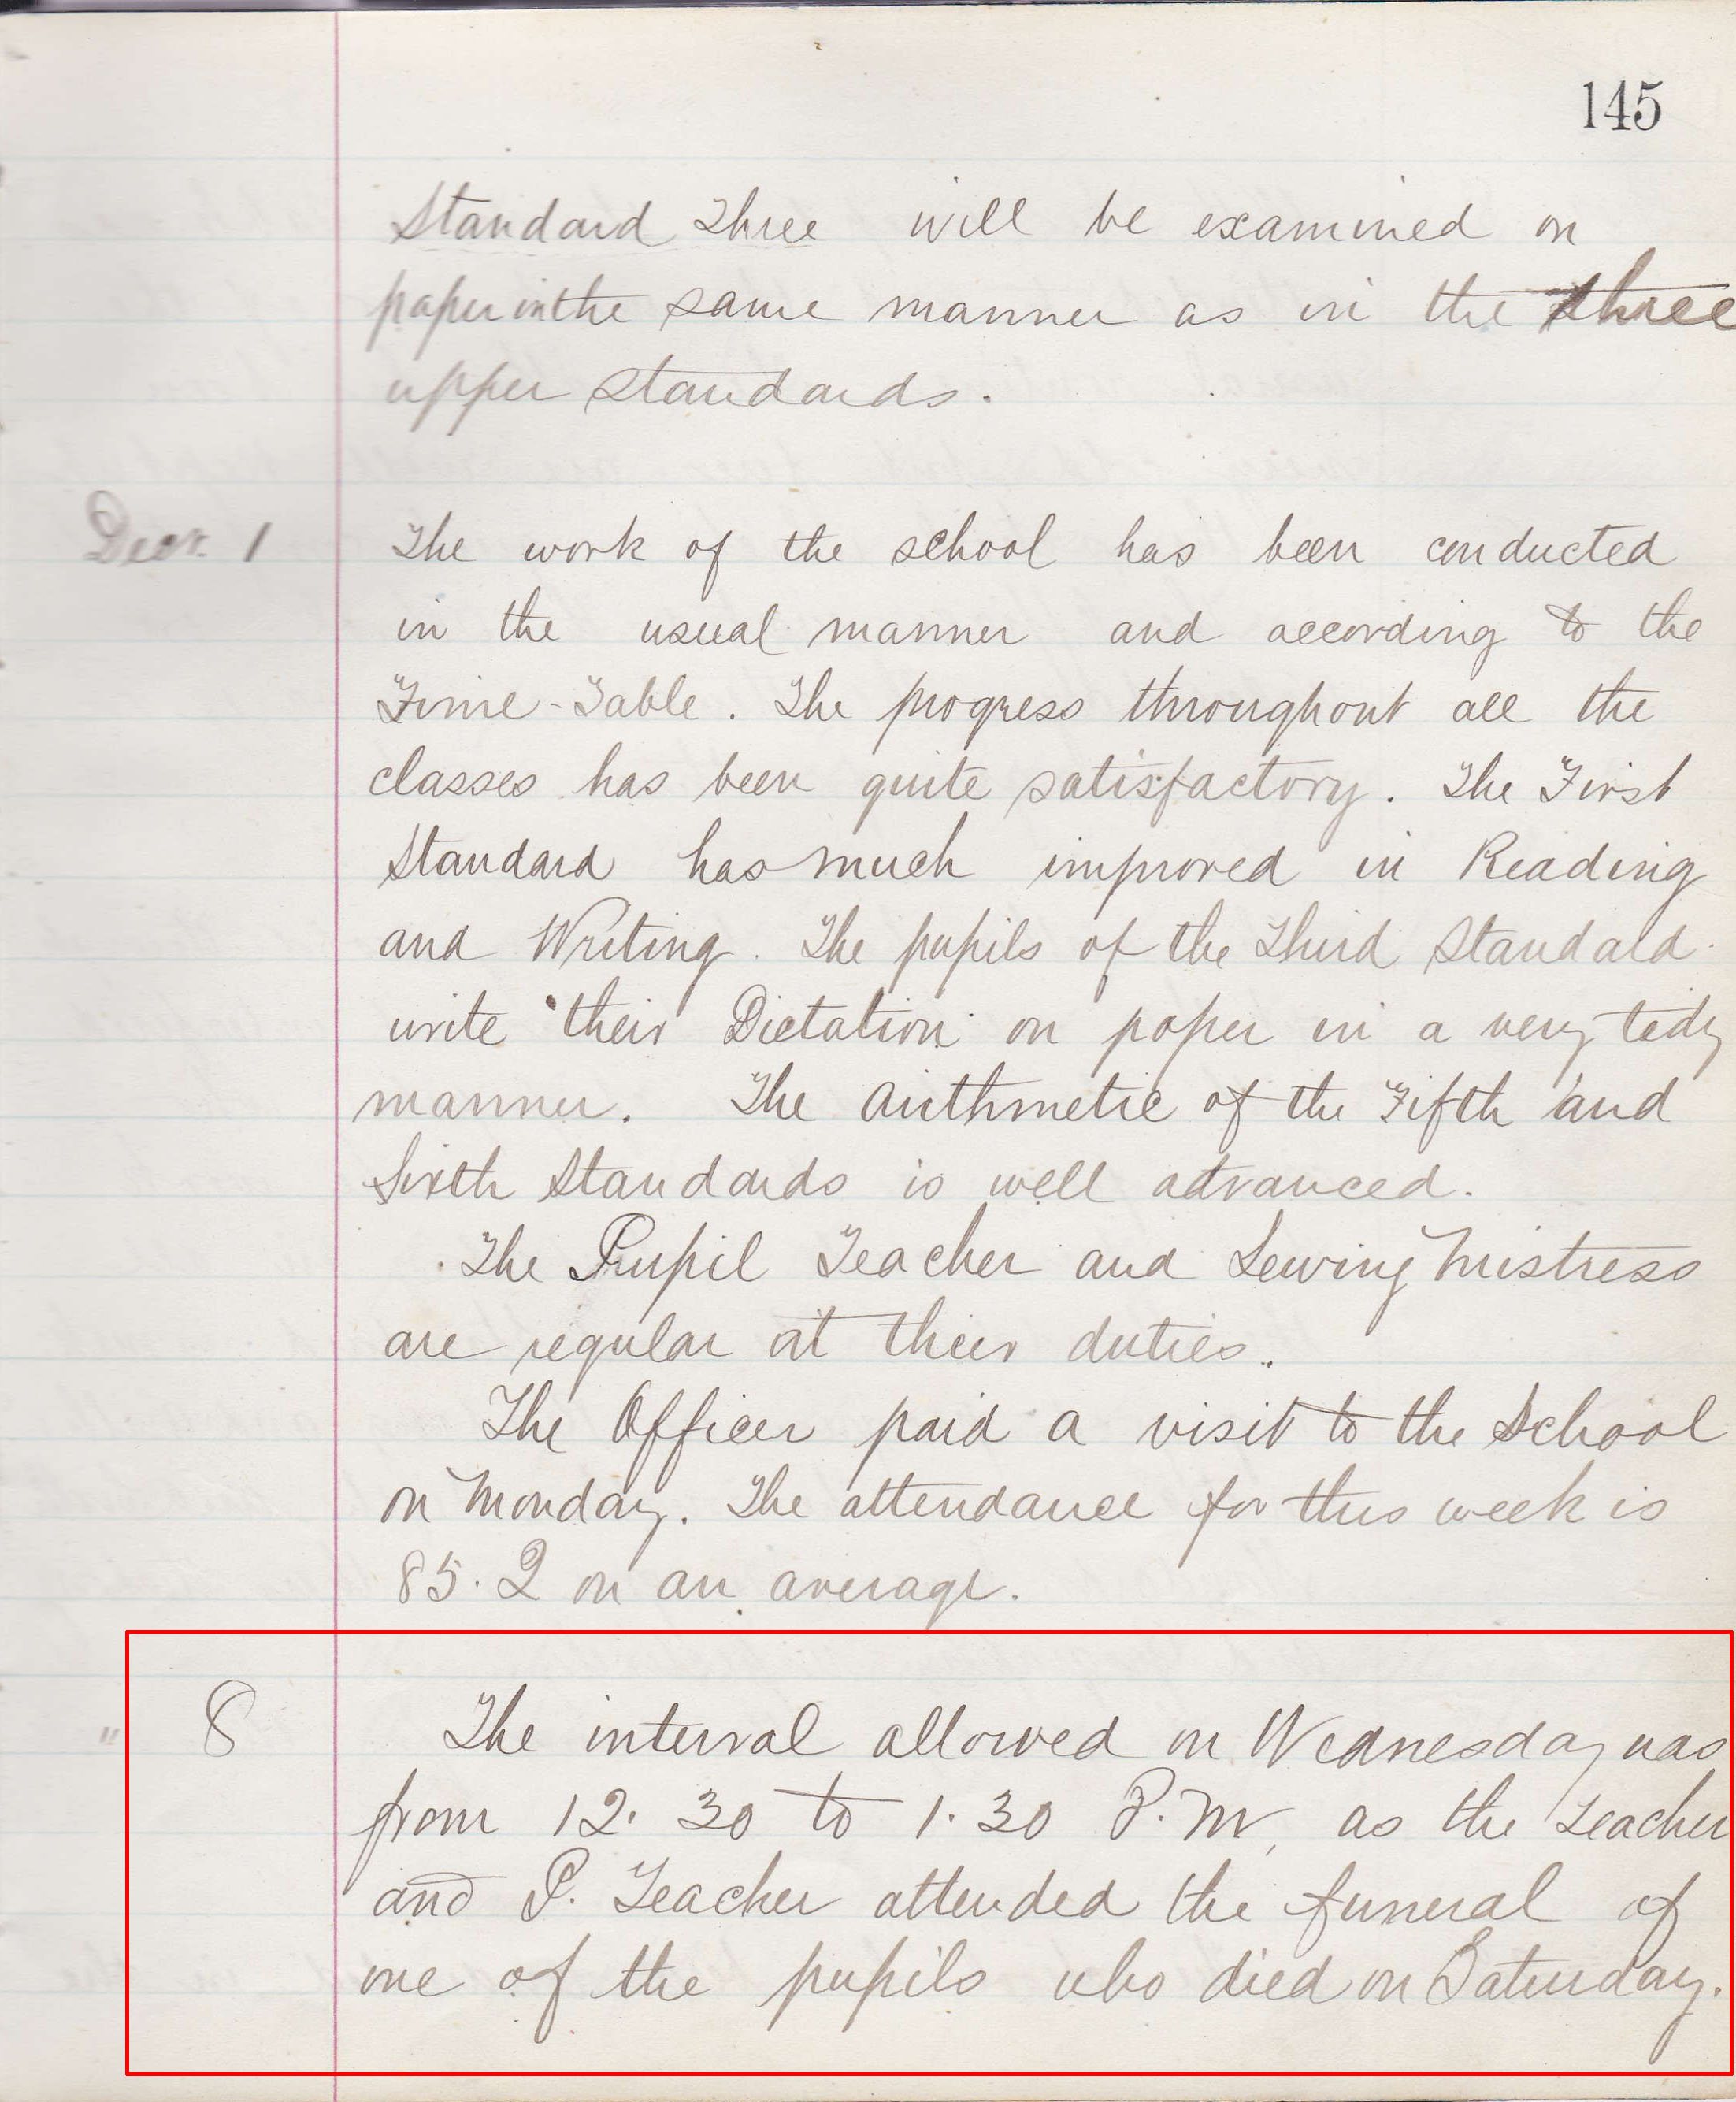 145
Standard Three will be examined on
paper in the same manner as in the three
upper standards.
Decr. 1 The work of the school has been conducted
in the usual manner and according to the
Time-Table. The progress throughout all the
classes has been quite satisfactory. The First
Standard has much improved in Reading
and Writing. The pupils of the Third Standard
write their Dictation on paper in a very tidy
manner. The Arithmetic of the Fifth and
Sixth Standards is well advanced.
The Pupil Teacher and Sewing Mistress
are regular at their duties.
The Officer paid a visit to the School
on Monday. The attendance for this week is
85.2 on an average.
" 8 The interval allowed on Wednesday was
from 12.30 to 1.30 P.M, as the Teacher
and P. Teacher attended the funeral of
one of the pupils who died on Saturday.